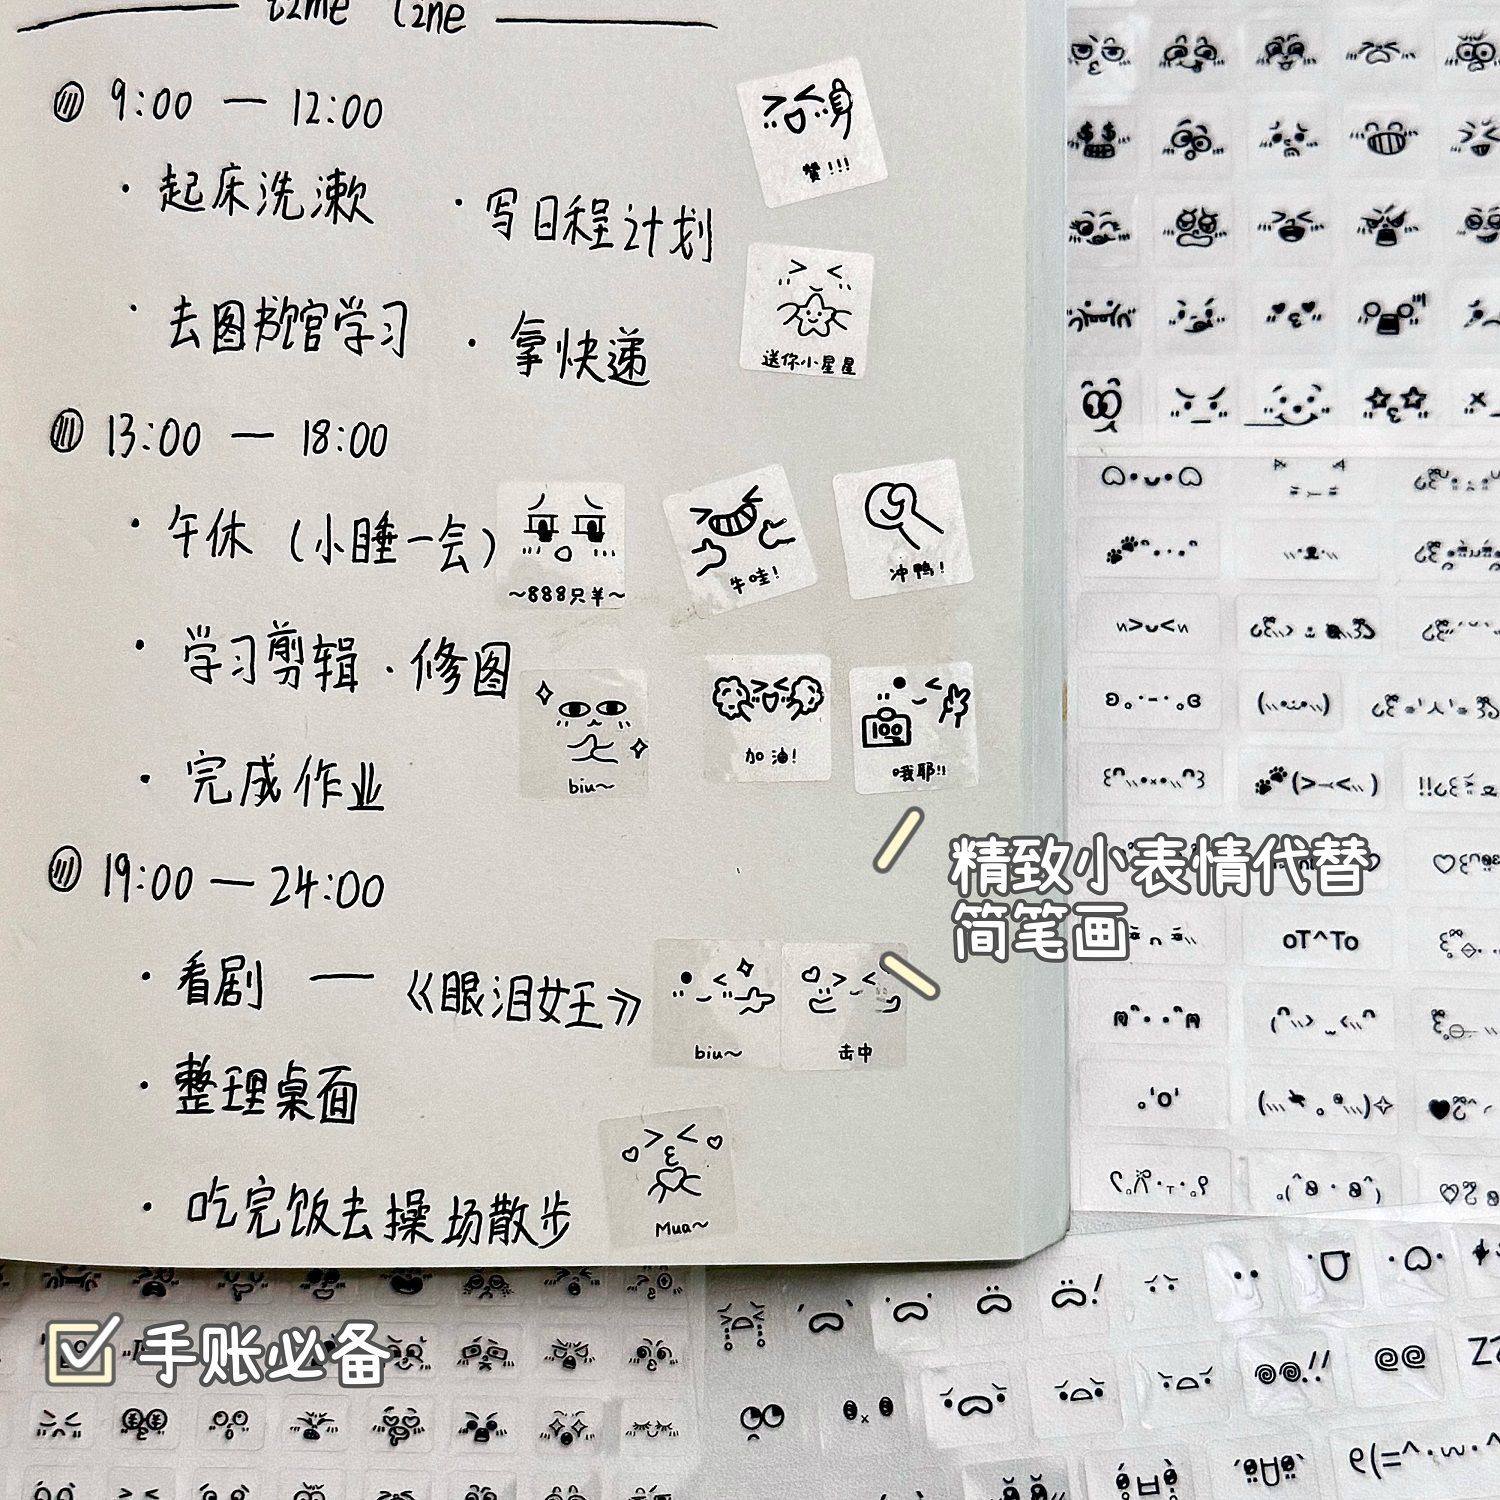 time line
9:00 — 12:00
· 起床洗漱 · 写日程计划
赞!!!
· 去图书馆学习 · 拿快递
送你小星星
13:00 — 18:00
· 午休（小睡一会）
~888只羊~
牛哇!
冲鸭!
· 学习剪辑 · 修图
· 完成作业
biu~
加油!
100
哦耶!!
精致小表情代替
简笔画
19:00 — 24:00
· 看剧 — 《眼泪女王》
biu~
击中
· 整理桌面
· 吃完饭去操场散步
Mua~
手账必备
oT^To